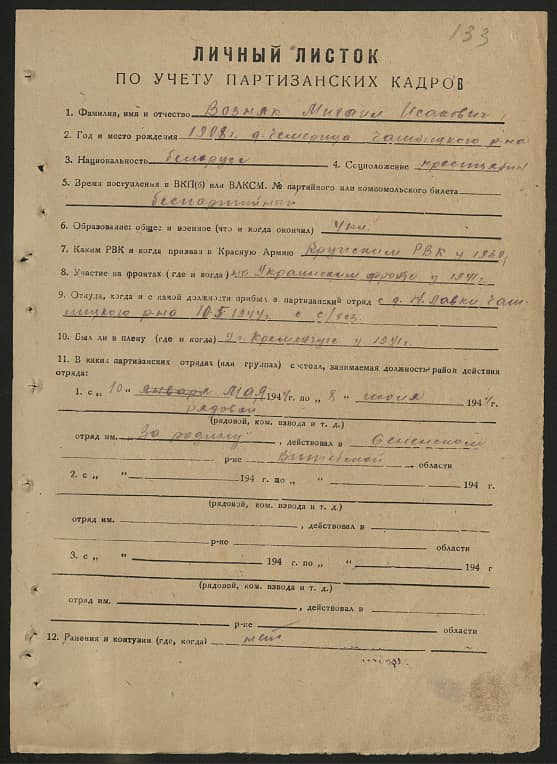 133
ЛИЧНЫЙ ЛИСТОК
ПО УЧЕТУ ПАРТИЗАНСКИХ КАДРОВ
1. Фамилия, имя и отчество Возняк Михаил Исакович
2. Год и место рождения 1908г. д. Чашницкого р-на
3. Национальность белорус 4. Соцположение крестьянин
5. Время поступления в ВКП(б) или ВЛКСМ. № партийного или комсомольского билета
беспартийный
6. Образование: общее и военное (что и когда окончил) 4 кл.
7. Каким РВК и когда призван в Красную Армию Крупским РВК у
8. Участие на фронтах (где и когда) на Украинском фронте у 1941г.
9. Откуда, когда и с какой должности прибыл в партизанский отряд с д. Н. Лавки Чаш-
ницкого р-на 10.5 1944 г. с с/хоз.
10. Был ли в плену (где и когда) у г. Кременчуг у 1941г.
11. В каких партизанских отрядах (или группах) состоял, занимаемая должность, район действия
отряда:
1. с „ 10 “ января мая 1944 г. по „ 8 “ июня 1944 г.
рядовой
(рядовой, ком. взвода и т. д.)
отряд им. За родину , действовал в Сенненском
р-не Витебской области
2. с „ “ 194 г. по „ “ 194 г.
(рядовой, ком. взвода и т. д.)
отряд им. , действовал в
р-не области
3. с „ “ 194 г. по „ “ 194 г
(рядовой, ком. взвода и т. д.)
отряд им. , действовал в
р-не области
12. Ранения и контузии (где, когда) нет